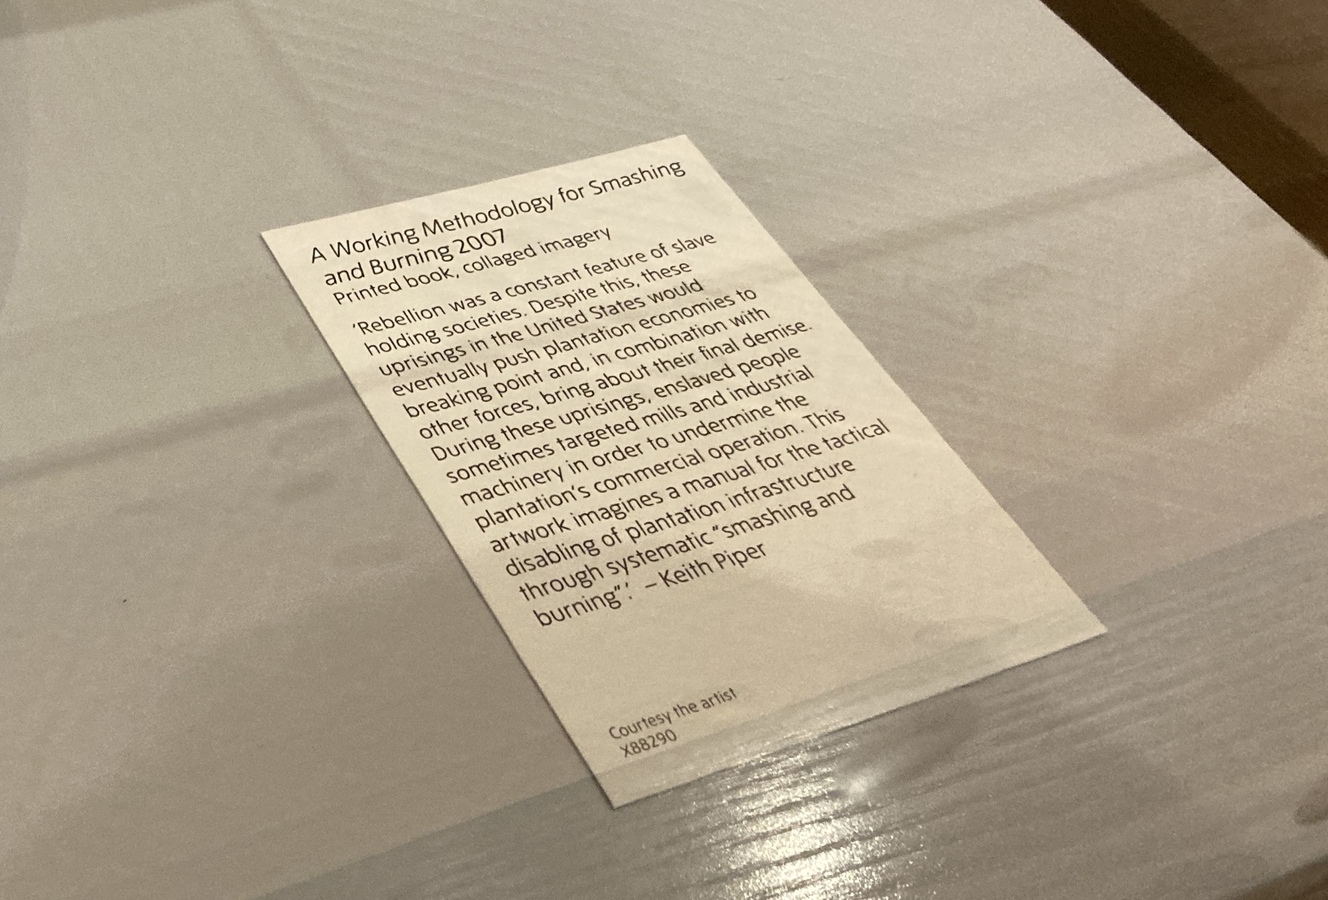 A Working Methodology for Smashing
and Burning 2007
Printed book, collaged imagery
‘Rebellion was a constant feature of slave
holding societies. Despite this, these
uprisings in the United States would
eventually push plantation economies to
breaking point and, in combination with
other forces, bring about their final demise.
During these uprisings, enslaved people
sometimes targeted mills and industrial
machinery in order to undermine the
plantation’s commercial operation. This
artwork imagines a manual for the tactical
disabling of plantation infrastructure
through systematic “smashing and
burning”’. – Keith Piper
Courtesy the artist
X88290